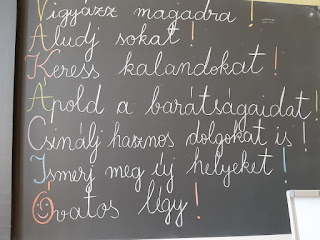 Vigyázz magadra !
Aludj sokat !
Keress kalandokat !
Ápold a barátságaidat !
Csinálj hasznos dolgokat is !
Ismerj meg új helyeket !
Óvatos légy !